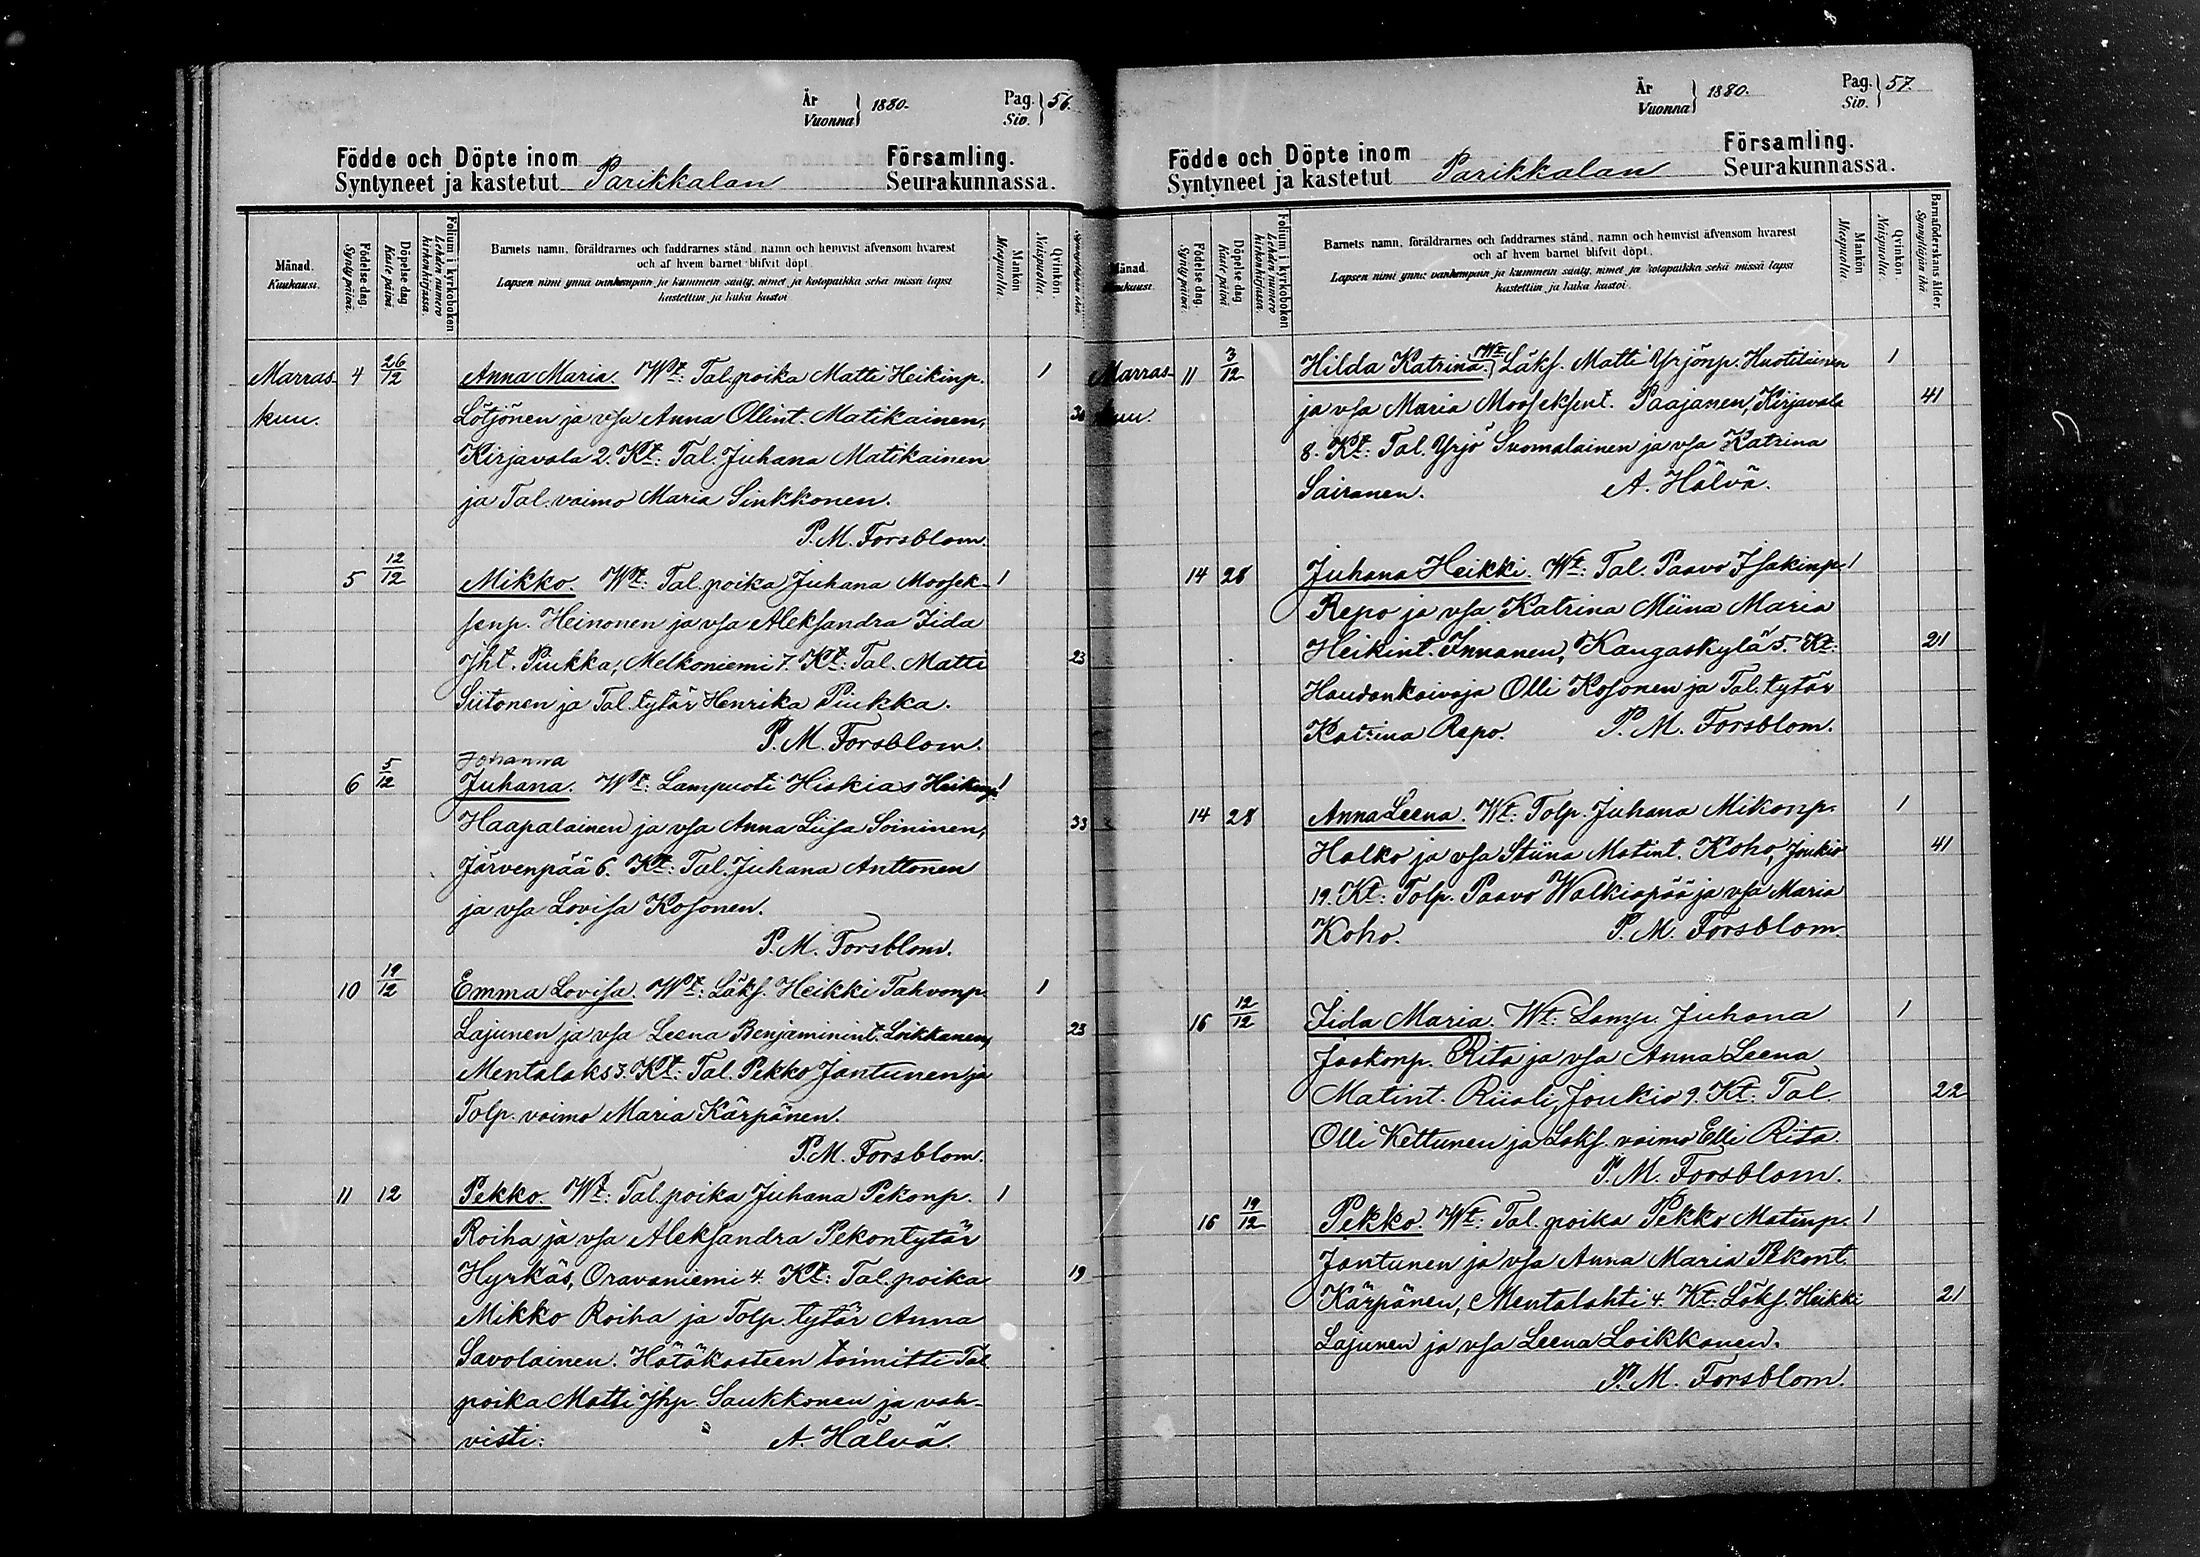 År
Vuonna } 1880. Pag.
Siv. } 56.
Födde och Döpte inom Församling.
Syntyneet ja kastetut Parikkalan Seurakunnassa.
Månad.
Kuukausi.
Födelse dag.
Syntypäivä.
Döpelse dag.
Kaste päivä.
Folium i kyrkoboken
Lehden numero
kirkonkirjassa.
Barnets namn, föräldrarnes och faddrarnes stånd, namn och hemvist äfvensom hvarest
och af hvem barnet blifvit döpt.
Lapsen nimi ynnä vanhempain ja kummein sääty, nimet ja kotopaikka sekä missä lapsi
kastettiin ja kuka kastoi
Mankön
Miespuolia.
Qvinkön
Naispuolia.
Marras- 4 26/12 Anna Maria. Wt: Tal.poika Matti Heikinp. 1
kuu. Lötjönen ja vsa Anna Ollint. Matikainen, 30
Kirjavala 2. Kt: Tal. Juhana Matikainen
ja Tal. vaimo Maria Sinkkonen.
P. M. Forsblom.
5 12/12 Mikko. Wt: Tal. poika Juhana Moosek- 1
senp. Heinonen ja vsa Aleksandra Iida
Jht. Piukka, Melkoniemi 7. Kt: Tal. Matti 23
Siitonen ja Tal. tytär Henrika Piukka.
P. M. Forsblom.
Johanna
6 5/12 Juhana. Wt: Lampuoti Hiskias Heikinp. 1
Haapalainen ja vsa Anna Liisa Soininen, 33
Järvenpää 6. Kt: Tal. Juhana Anttonen
ja vsa Lovisa Kosonen.
P. M. Forsblom.
10 19/12 Emma Lovisa. Wt: Läks. Heikki Tahvonp. 1
Lajunen ja vsa Leena Benjaminint. Loikkanen, 23
Mentalaks 3. Kt: Tal. Pekko Jantunen ja
Tolp. vaimo Maria Kärpänen.
P. M. Forsblom.
11 12 Pekko. Wt: Tal. poika Juhana Pekonp. 1
Roiha ja vsa Aleksandra Pekontytär
Hyrkäs, Oravaniemi 4. Kt: Tal. poika 19
Mikko Roiha ja Tolp. tytär Anna
Savolainen. Hätäkasteen toimitti Tal.
poika Matti Jhp. Saukkonen ja vah-
visti: A. Hälvä.
År
Vuonna } 1880. Pag.
Siv. } 57.
Födde och Döpte inom Församling.
Syntyneet ja kastetut Parikkalan Seurakunnassa.
Månad.
Kuukausi.
Födelse dag.
Syntypäivä.
Döpelse dag.
Kaste päivä.
Folium i kyrkoboken
Lehden numero
kirkonkirjassa.
Barnets namn, föräldrarnes och faddrarnes stånd, namn och hemvist äfvensom hvarest
och af hvem barnet blifvit döpt.
Lapsen nimi ynnä vanhempain ja kummein sääty, nimet ja kotopaikka sekä missä lapsi
kastettiin ja kuka kastoi.
Mankön
Miespuolia.
Qvinkön
Naispuolia.
Barnaföderskans ålder.
Synnyttäjän ikä
Marras- 11 3/12 Hilda Katrina. Wt: Läks. Matti Yrjönp. Huotilainen 1
kuu. ja vsa Maria Mooseksent. Paajanen, Kirjavala 41
8. Kt: Tal. Yrjö Suomalainen ja vsa Katrina
Sairanen. A. Hälvä.
14 28 Juhana Heikki. Wt: Tal. Paavo Isakinp. 1
Repo ja vsa Katrina Miina Maria
Heikint. Innanen, Kangaskylä 5. Kt: 21
Haudankaivaja Olli Kosonen ja Tal. tytär
Katrina Repo. P. M. Forsblom.
14 28 Anna Leena. Wt: Tolp. Juhana Mikonp. 1
Halko ja vsa Stiina Matint. Koho, Joukio 41
19. Kt: Tolp. Paavo Walkiapää ja vsa Maria
Koho. P. M. Forsblom.
16 12/12 Iida Maria. Wt: Lamp. Juhana 1
Jaakonp. Rita ja vsa Anna Leena
Matint. Riiali, Joukio 9. Kt: Tal. 22
Olli Kettunen ja Loks. vaimo Elli Rita.
P. M. Forsblom.
16 19/12 Pekko. Wt: Tal. poika Pekko Matinp. 1
Jantunen ja vsa Anna Maria Pekont.
Kärpänen, Mentalahti 4. Kt: Läks. Heikki 21
Lajunen ja vsa Leena Loikkanen.
P. M. Forsblom.